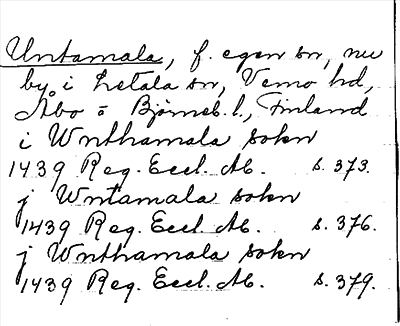 Untamala, f. egen sn, nu
by i Letala sn, Vemo hd,
Åbo o Björneb. l., Finland
i Wnthamala sokn
1439 Reg. Eccl. Ab. s. 373.
j Wntamala sokn
1439 Reg. Eccl. Ab. s. 376.
j Wnthamala sokn
1439 Reg. Eccl. Ab. s. 379.